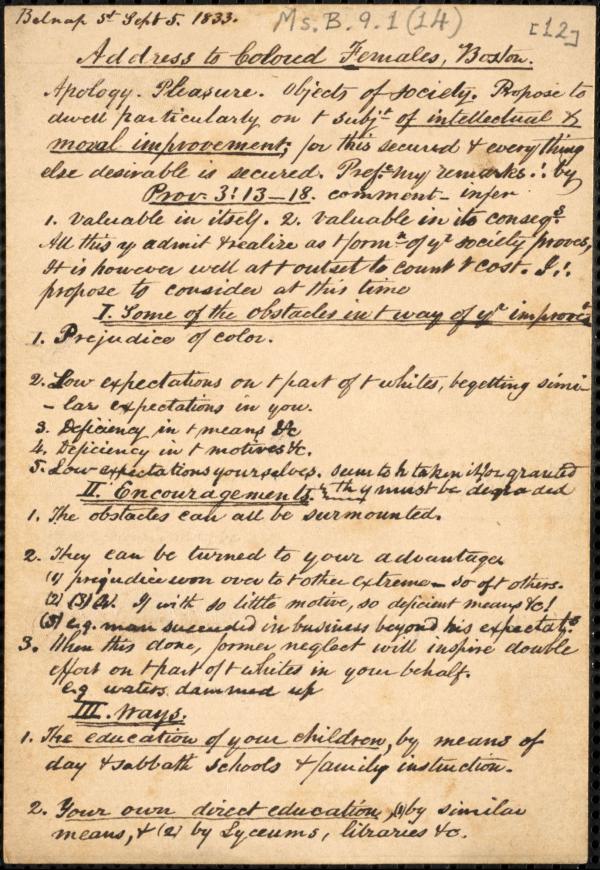 Belnap St Sept 5. 1833.
Ms. B. 9. 1 (14)
[12]
Address to Colored Females, Boston.
Apology. Pleasure. Objects of society. Propose to
dwell particularly on t subjt of intellectual &
moral improvement; for this secured & everything
else desirable is secured. Pref. my remarks ∴ by
Prov. 3: 13–18. comment – infer
1. valuable in itself. 2. valuable in its conseqs.
All this y admit & realize as t formn of yr society proves,
It is however well at t outset to count t cost. I ∴
propose to consider at this time
I. Some of the obstacles in t way of yr improvet
1. Prejudice of color.
2. Low expectations on t part of t whites, begetting simi-
-lar expectations in you.
3. Deficiency in t means &c
4. Deficiency in t motives &c.
5. Low expectations yourselves. seem to h taken it for granted
tht y must be degraded
II. Encouragements.
1. The obstacles can all be surmounted.
2. They can be turned to your advantage
(1) prejudice won over to t other extreme – so of t others.
(2) (3) If with so little motive, so deficient means &c!
(5) e.g. man succeeded in business beyond his expectats.
3. When this done, former neglect will inspire double
effort on t part of t whites in your behalf.
e.g waters dammed up
III. Ways.
1. The education of your children, by means of
day & sabbath schools & family instruction.
2. Your own direct education, (1) by similar
means, & (2) by Lyceums, libraries &c.